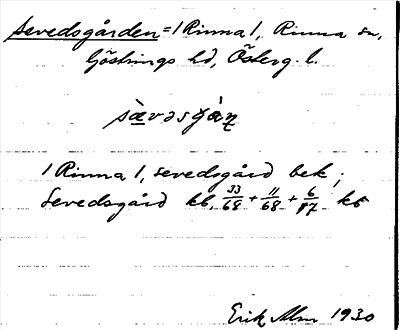 Sevedsgården = / Rinna /, Rinna sn,
Göstrings hd, Österg. l.
sä̀vəsgàṇ
/ Rinna /, sevedsgård bek;
Sevedsgård kb, 33/68 + 11/68 + 6/17 kb
Erik Alm 1930